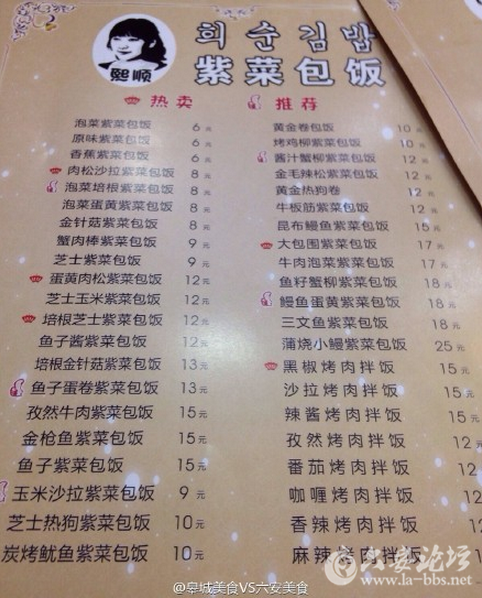 희순김밥
熙顺
紫菜包饭
热卖
推荐
泡菜紫菜包饭 6元
原味紫菜包饭 6元
香蕉紫菜包饭 6元
肉松沙拉紫菜包饭 8元
泡菜培根紫菜包饭 8元
泡菜蛋黄紫菜包饭 8元
金针菇紫菜包饭 8元
蟹肉棒紫菜包饭 9元
芝士紫菜包饭 9元
蛋黄肉松紫菜包饭 12元
芝士玉米紫菜包饭 12元
培根芝士紫菜包饭 12元
鱼子酱紫菜包饭 12元
培根金针菇紫菜包饭 13元
鱼子蛋卷紫菜包饭 13元
孜然牛肉紫菜包饭 15元
金枪鱼紫菜包饭 15元
鱼子紫菜包饭 15元
玉米沙拉紫菜包饭 9元
芝士热狗紫菜包饭 10元
炭烤鱿鱼紫菜包饭 10元
黄金卷包饭 10元
烤鸡柳紫菜包饭 10元
酱汁蟹柳紫菜包饭 12元
金毛辣松紫菜包饭 12元
黄金热狗卷 12元
牛板筋紫菜包饭 12元
昆布鳗鱼紫菜包饭 15元
大包围紫菜包饭 17元
牛肉泡菜紫菜包饭 17元
鱼籽蟹柳紫菜包饭 18元
鳗鱼蛋黄紫菜包饭 18元
三文鱼紫菜包饭 18元
蒲烧小鳗紫菜包饭 25元
黑椒烤肉拌饭 15元
沙拉烤肉拌饭 15元
辣酱烤肉拌饭 15
孜然烤肉拌饭 12
番茄烤肉拌饭 12
咖喱烤肉拌饭 12
香辣烤肉拌饭 12
麻辣烤肉拌饭
@皋城美食VS六安美食
六安论坛
www.la-bbs.net